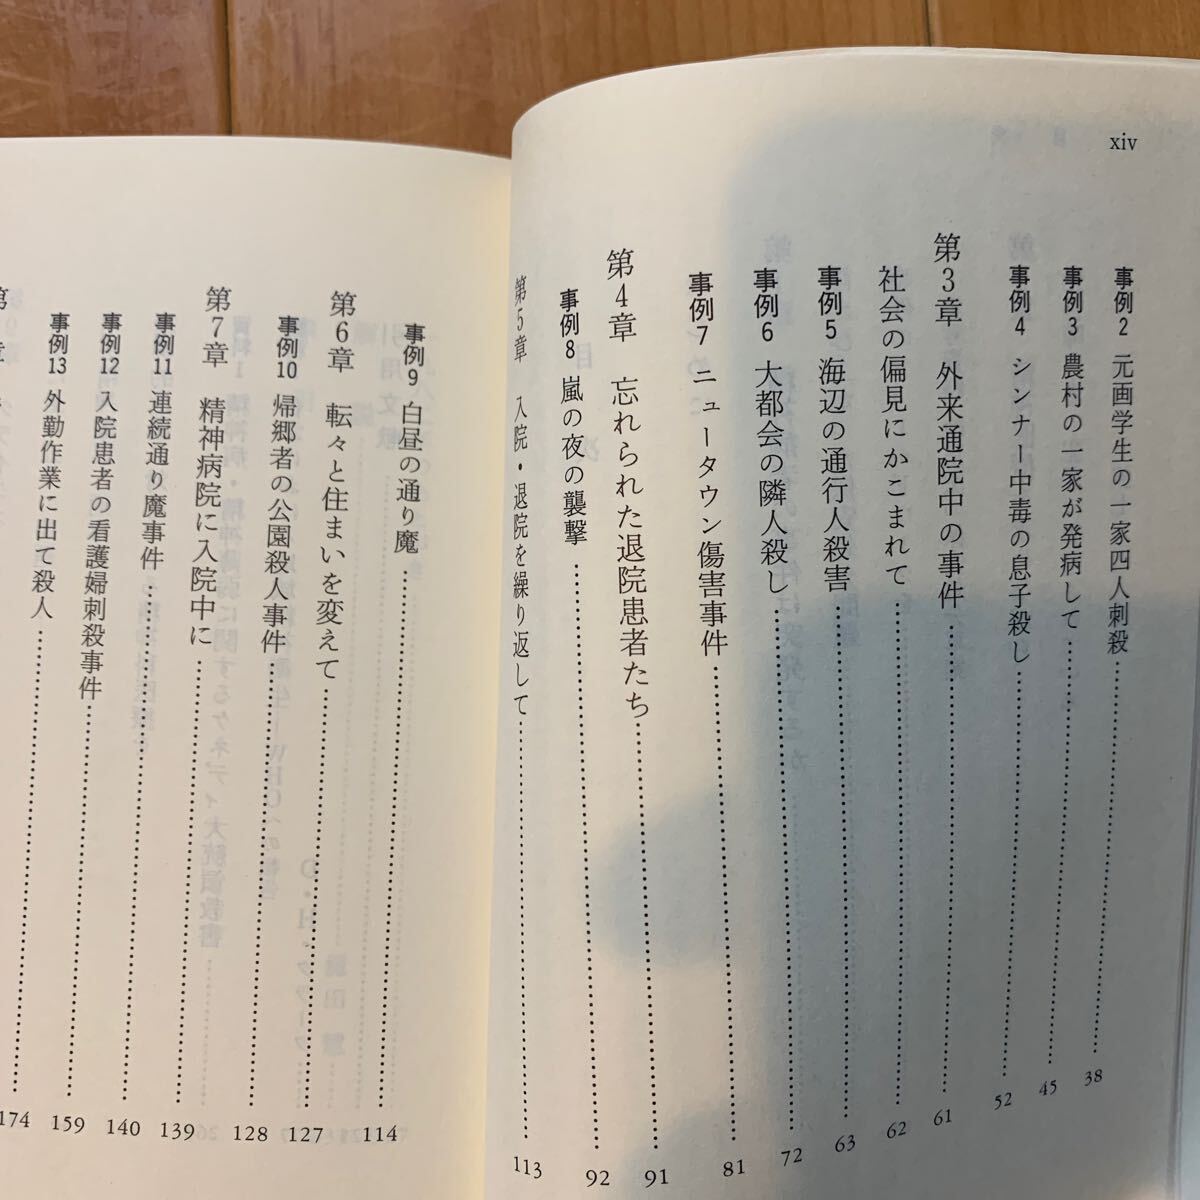 xiv
事例2 元画学生の一家四人刺殺……38
事例3 農村の一家が発病して……45
事例4 シンナー中毒の息子殺し……52
第3章 外来通院中の事件……61
社会の偏見にかこまれて……62
事例5 海辺の通行人殺害……63
事例6 大都会の隣人殺し……72
事例7 ニュータウン傷害事件……81
第4章 忘れられた退院患者たち……91
事例8 嵐の夜の襲撃……92
第5章 入院・退院を繰り返して……113
事例9 白昼の通り魔……114
第6章 転々と住まいを変えて……127
事例10 帰郷者の公園殺人事件……128
第7章 精神病院に入院中に……139
事例11 連続通り魔事件……140
事例12 入院患者の看護婦刺殺事件……159
事例13 外勤作業に出て殺人……174